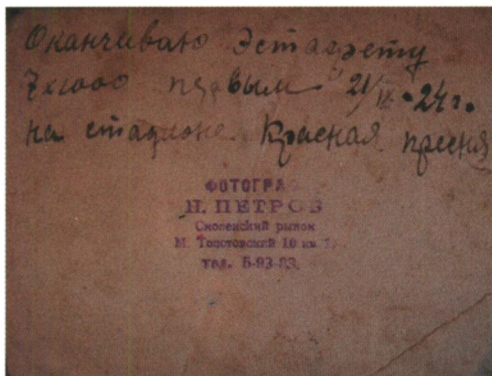 Оканчиваю Эстафету
7х1000 первым 21/IV-24г.
на стадионе Красная пресня
ФОТОГРАФ
Н. ПЕТРОВ
Смоленский рынок
М. Толстовский 10 кв
тел. 5-93-83